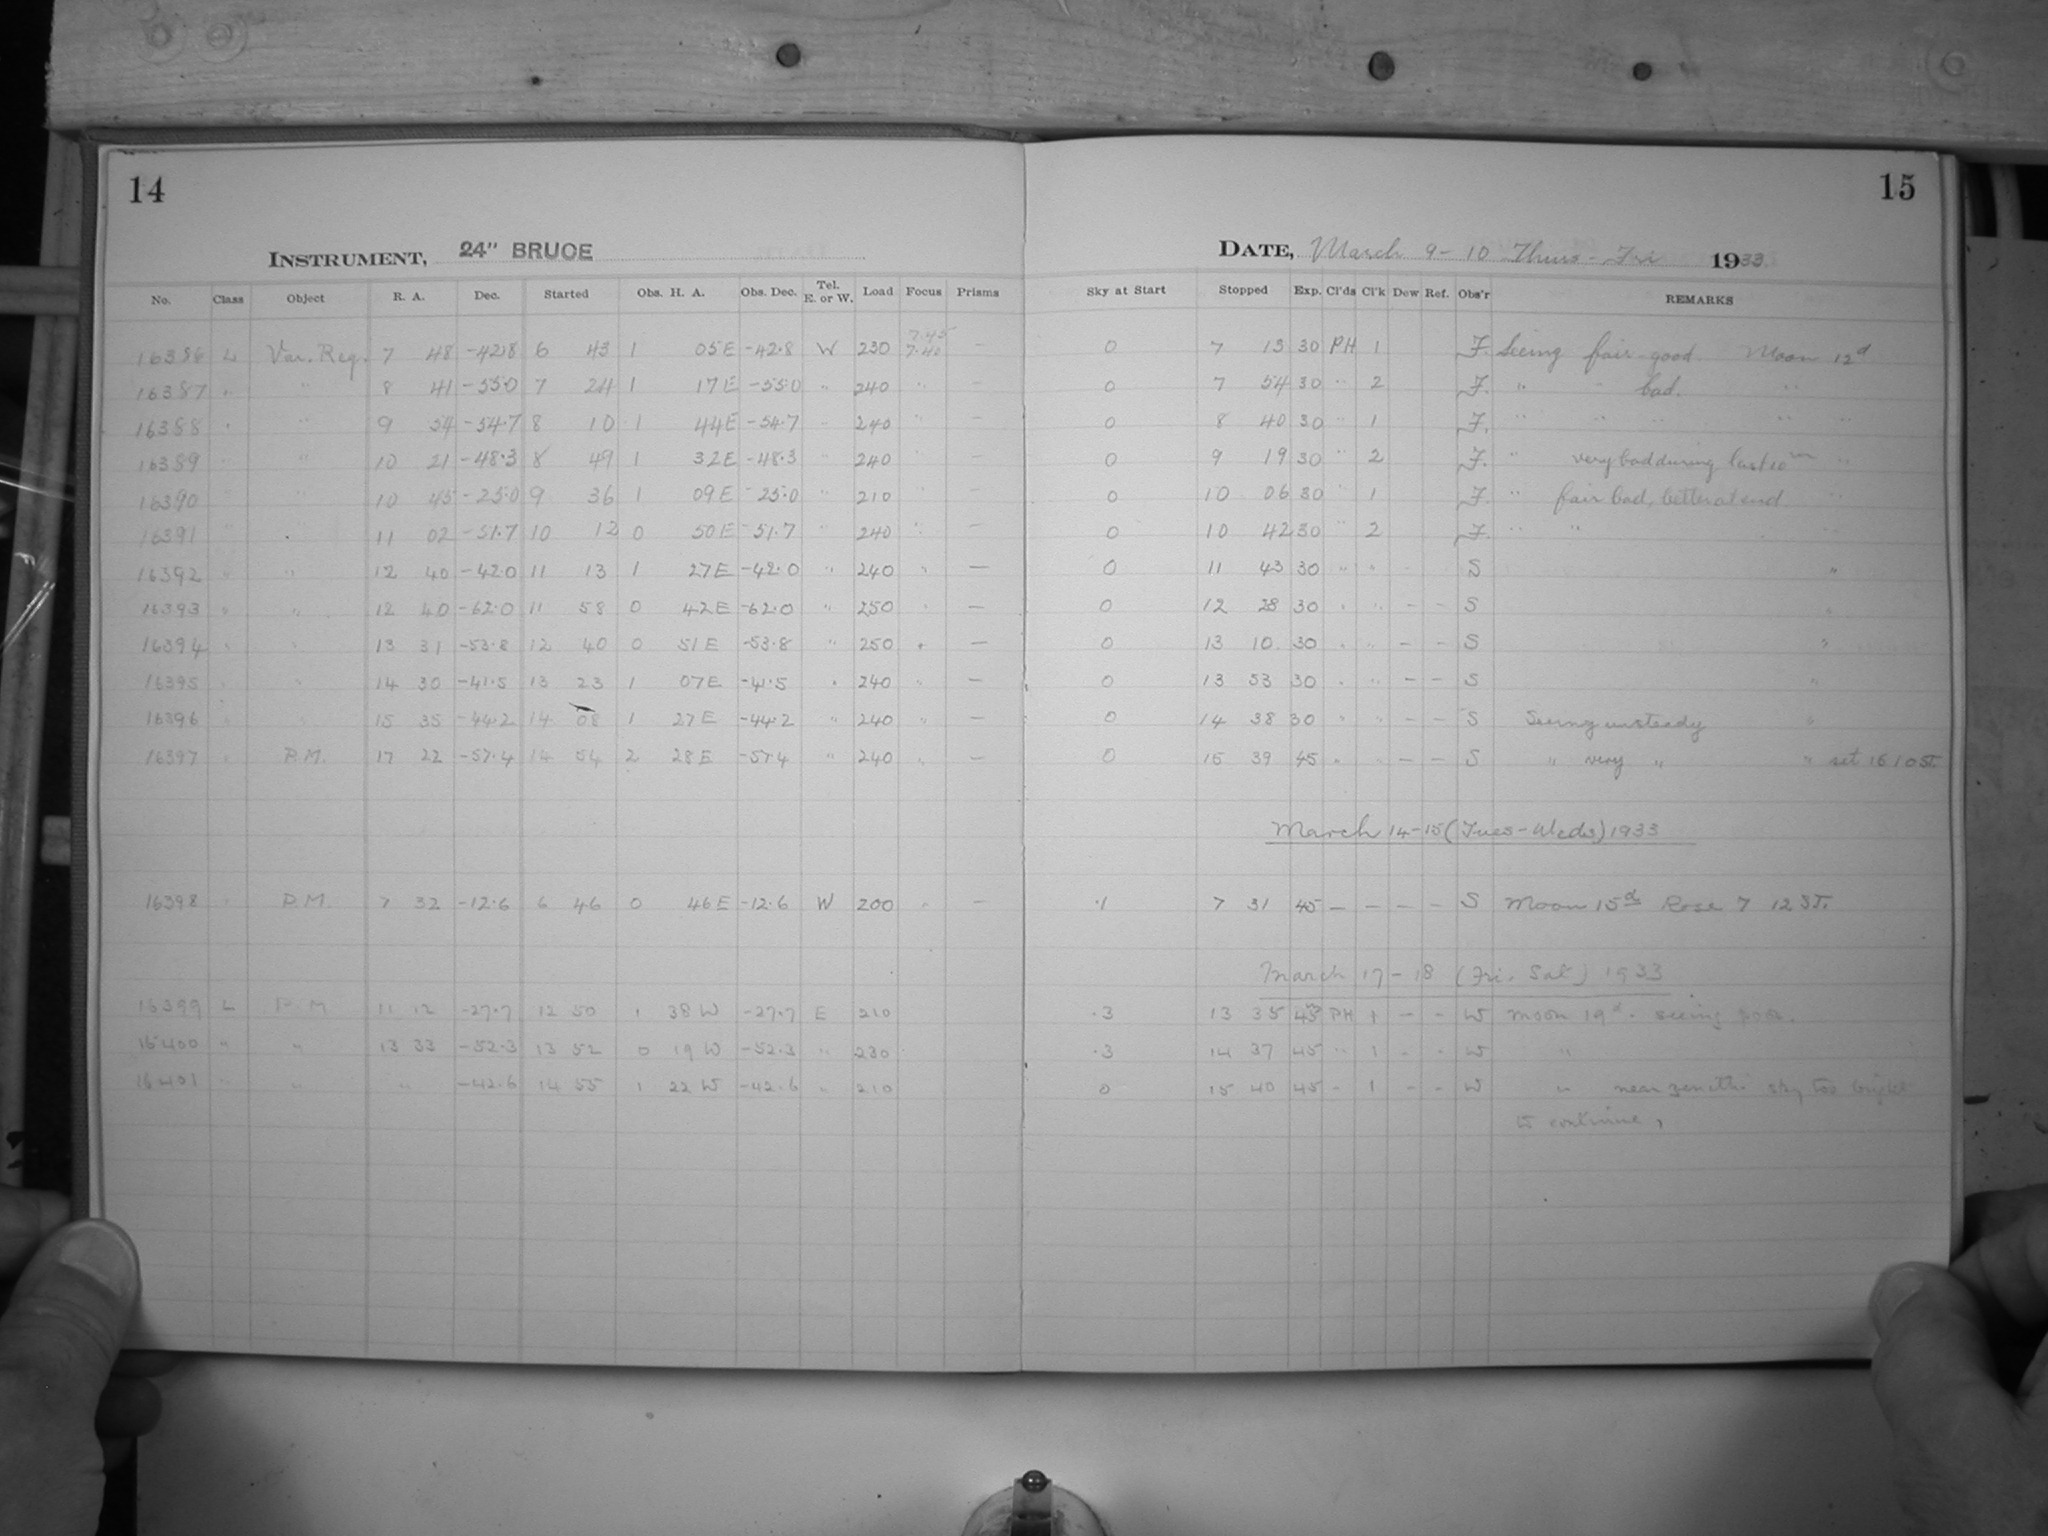 14
15
INSTRUMENT, 24" BRUCE
DATE, March 9-10 Thurs-Fri 1933
No. Class Object R. A. Dec. Started Obs. H. A. Obs. Dec. Tel. E. or W. Load Focus Prisms Sky at Start Stopped Exp. Cl'ds Cl'k Dew Ref. Obs'r REMARKS
7.45
16386 L Var. Reg. 7 48 -42.8 6 43 1 05E -42.8 W 230 7.40 - 0 7 13 30 PH 1 F. Seeing fair-good. Moon 12d
16387 " " 8 41 -55.0 7 24 1 17E -55.0 " 240 " - 0 7 54 30 " 2 F. " - bad. "
16388 " " 9 54 -54.7 8 10 1 44E -54.7 " 240 " - 0 8 40 30 " 1 F. " " " "
16389 " " 10 21 -48.3 8 49 1 32E -48.3 " 240 " - 0 9 19 30 " 2 F. " very bad during last 10m "
16390 " " 10 45 -25.0 9 36 1 09E -25.0 " 210 " - 0 10 06 30 " 1 F. " fair bad, better at end. "
16391 " " 11 02 -51.7 10 12 0 50E -51.7 " 240 " - 0 10 42 30 " 2 F. " " "
16392 " " 12 40 -42.0 11 13 1 27E -42.0 " 240 " - 0 11 43 30 " " S "
16393 " " 12 40 -62.0 11 58 0 42E -62.0 " 250 " - 0 12 28 30 " " - - S "
16394 " " 13 31 -53.8 12 40 0 51E -53.8 " 250 " - 0 13 10 30 " " - - S "
16395 " " 14 30 -41.5 13 23 1 07E -41.5 " 240 " - 0 13 53 30 " " - - S "
16396 " " 15 35 -44.2 14 08 1 27E -44.2 " 240 " - 0 14 38 30 " " - - S Seeing unsteady "
16397 " P.M. 17 22 -57.4 14 54 2 28E -57.4 " 240 " - 0 15 39 45 " " - - S " very " " set 16 10 ST.
March 14-15 (Tues-Weds) 1933
16398 " P.M. 7 32 -12.6 6 46 0 46E -12.6 W 200 " - .1 7 31 45 - - - - S Moon 15d Rose 7 12 ST.
March 17-18 (Fri. Sat) 1933
16399 L P.M 11 12 -27.7 12 50 1 38W -27.7 E 210 .3 13 35 45 PH 1 - - W Moon 19d. seeing poor.
16400 " " 13 33 -52.3 13 52 0 19W -52.3 " 230 .3 14 37 45 " 1 - - W "
16401 " " " -42.6 14 55 1 22W -42.6 " 210 0 15 40 45 - 1 - - W " near zenith. sky too bright
to continue,